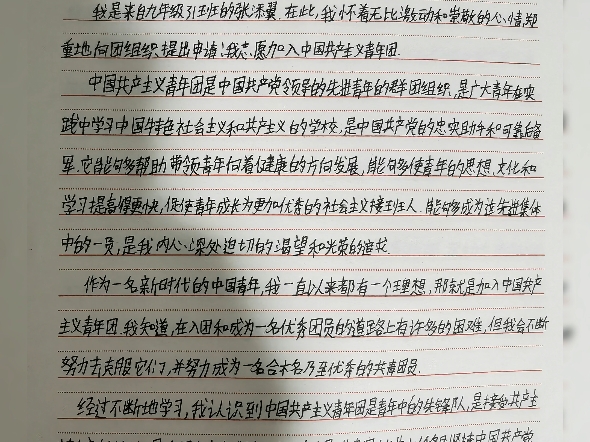 我是来自九年级引班的张添翼.在此,我怀着无比激动和崇敬的心情郑
重地向团组织提出申请:我志愿加入中国共产主义青年团.
中国共产主义青年团是中国共产党领导的先进青年的群团组织,是广大青年在实
践中学习中国特色社会主义和共产主义的学校,是中国共产党的忠实助手和可靠后备
军.它能够帮助、带领青年向着健康的方向发展,能够使青年的思想、文化和
学习提高得更快,促使青年成长为更加优秀的社会主义接班人.能够成为这先进集体
中的一员,是我内心深处迫切的渴望和光荣的追求.
作为一名新时代的中国青年,我一直以来都有一个理想,那就是加入中国共产
主义青年团.我知道,在入团和成为一名优秀团员的道路上有许多的困难,但我会不断
努力去克服它们,并努力成为一名合格乃至优秀的共青团员.
经过不断地学习,我认识到中国共产主义青年团是青年中的先锋队,是接受共产主